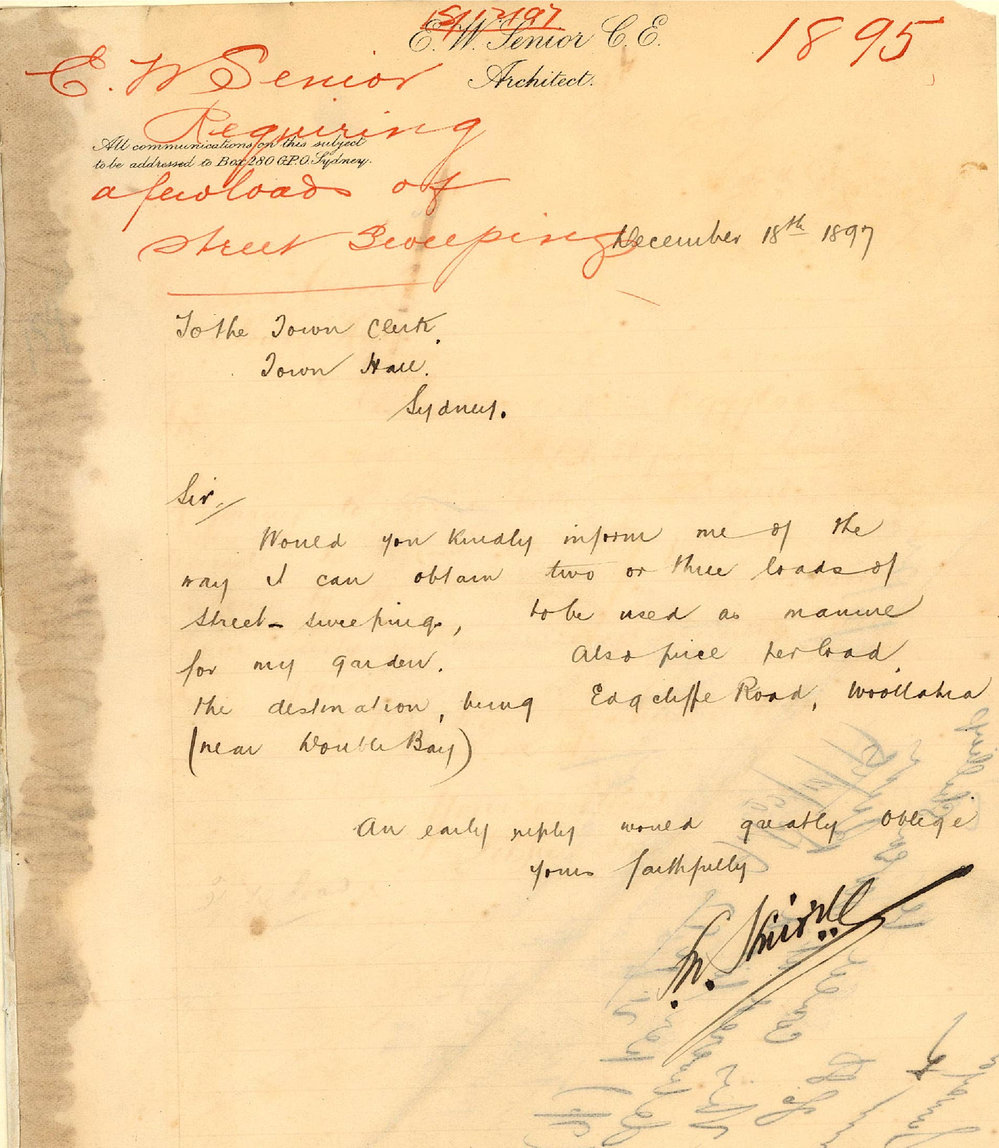 1895
E. W. Senior C.E.
Architect.
E. W Senior
Requiring
All communications on this subject
to be addressed to Box 280 G.P.O. Sydney.
a few loads of
street Sweepings
December 18th 1897
To the Town Clerk,
Town Hall.
Sydney.
Sir,
Would you kindly inform me of the
way I can obtain two or three loads of
street-sweepings, to be used as manure
for my garden. Also price per load,
the destination, being Edgcliffe Road, Woollahra
(near Double Bay)
An early reply would greatly oblige
yours faithfully